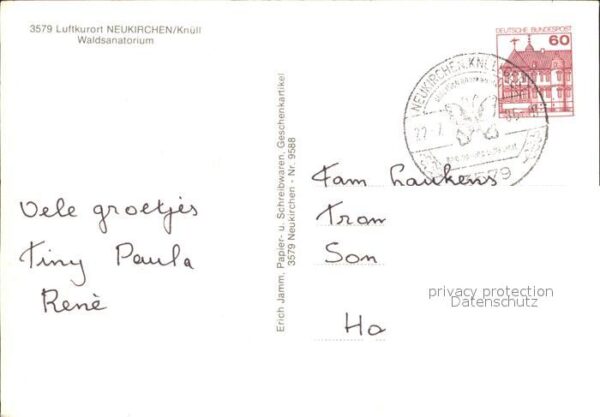 3579 Luftkurort NEUKIRCHEN/Knüll
Waldsanatorium
DEUTSCHE BUNDESPOST
60
NEUKIRCHEN, KNÜLL
22.7.
3579
Erich Jamm, Papier- u. Schreibwaren, Geschenkartikel
3579 Neukirchen - Nr. 9588
Vele groetjes
Tiny Paula
Renè
Fam Laukens
Tran
Son
Ha
privacy protection
Datenschutz